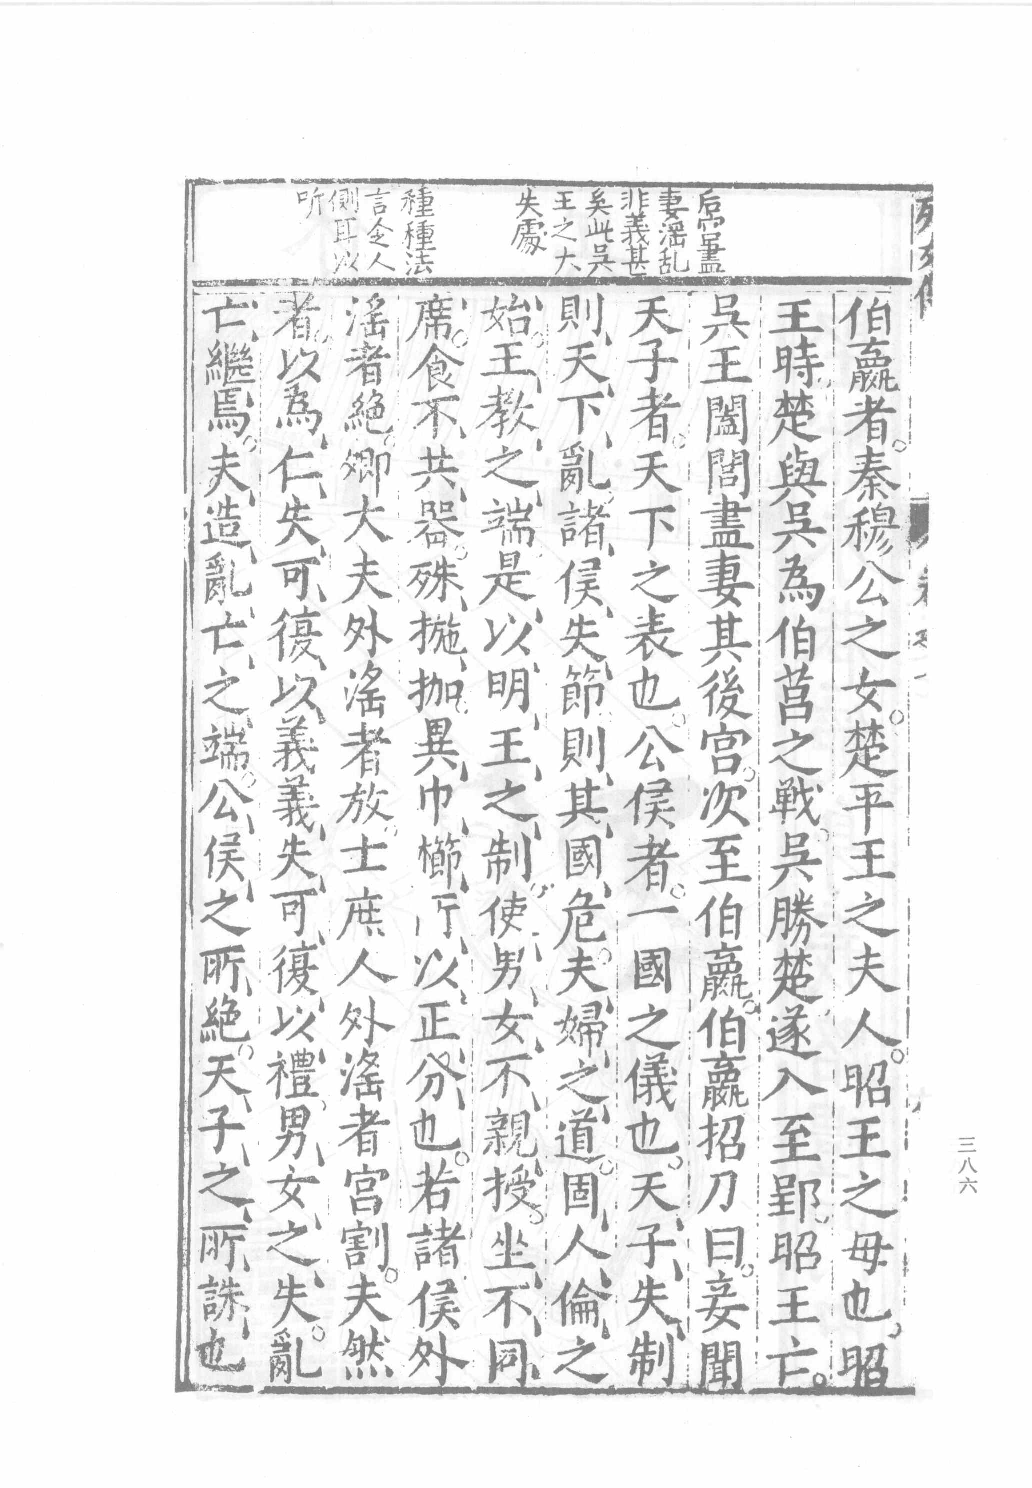 后宮盡
妻滛乱
非義甚
矣此吳
王之大
失處
種種法
言令人
側耳以
听
伯嬴者。秦穆公之女。楚平王之夫人。昭王之母也。昭
王時。楚與吳為伯莒之戰。吳勝楚。遂入至郢。昭王亡。
吳王闔閭盡妻其後宮。次至伯嬴。伯嬴招刀曰。妾聞
天子者。天下之表也。公侯者。一國之儀也。天子失制
則天下亂。諸侯失節則其國危。夫婦之道。固人倫之
始。王教之端。是以明王之制。使男女不親授。坐不同
席。食不共器。殊椸枷。異巾櫛。所以正分也。若諸侯外
滛者絕。卿大夫外滛者放。士庶人外滛者宮割。夫然
者。以為仁失可復以義。義失可復以禮。男女之失。亂
亡繼焉。夫造亂亡之端。公侯之所絕。天子之所誅也
三八六